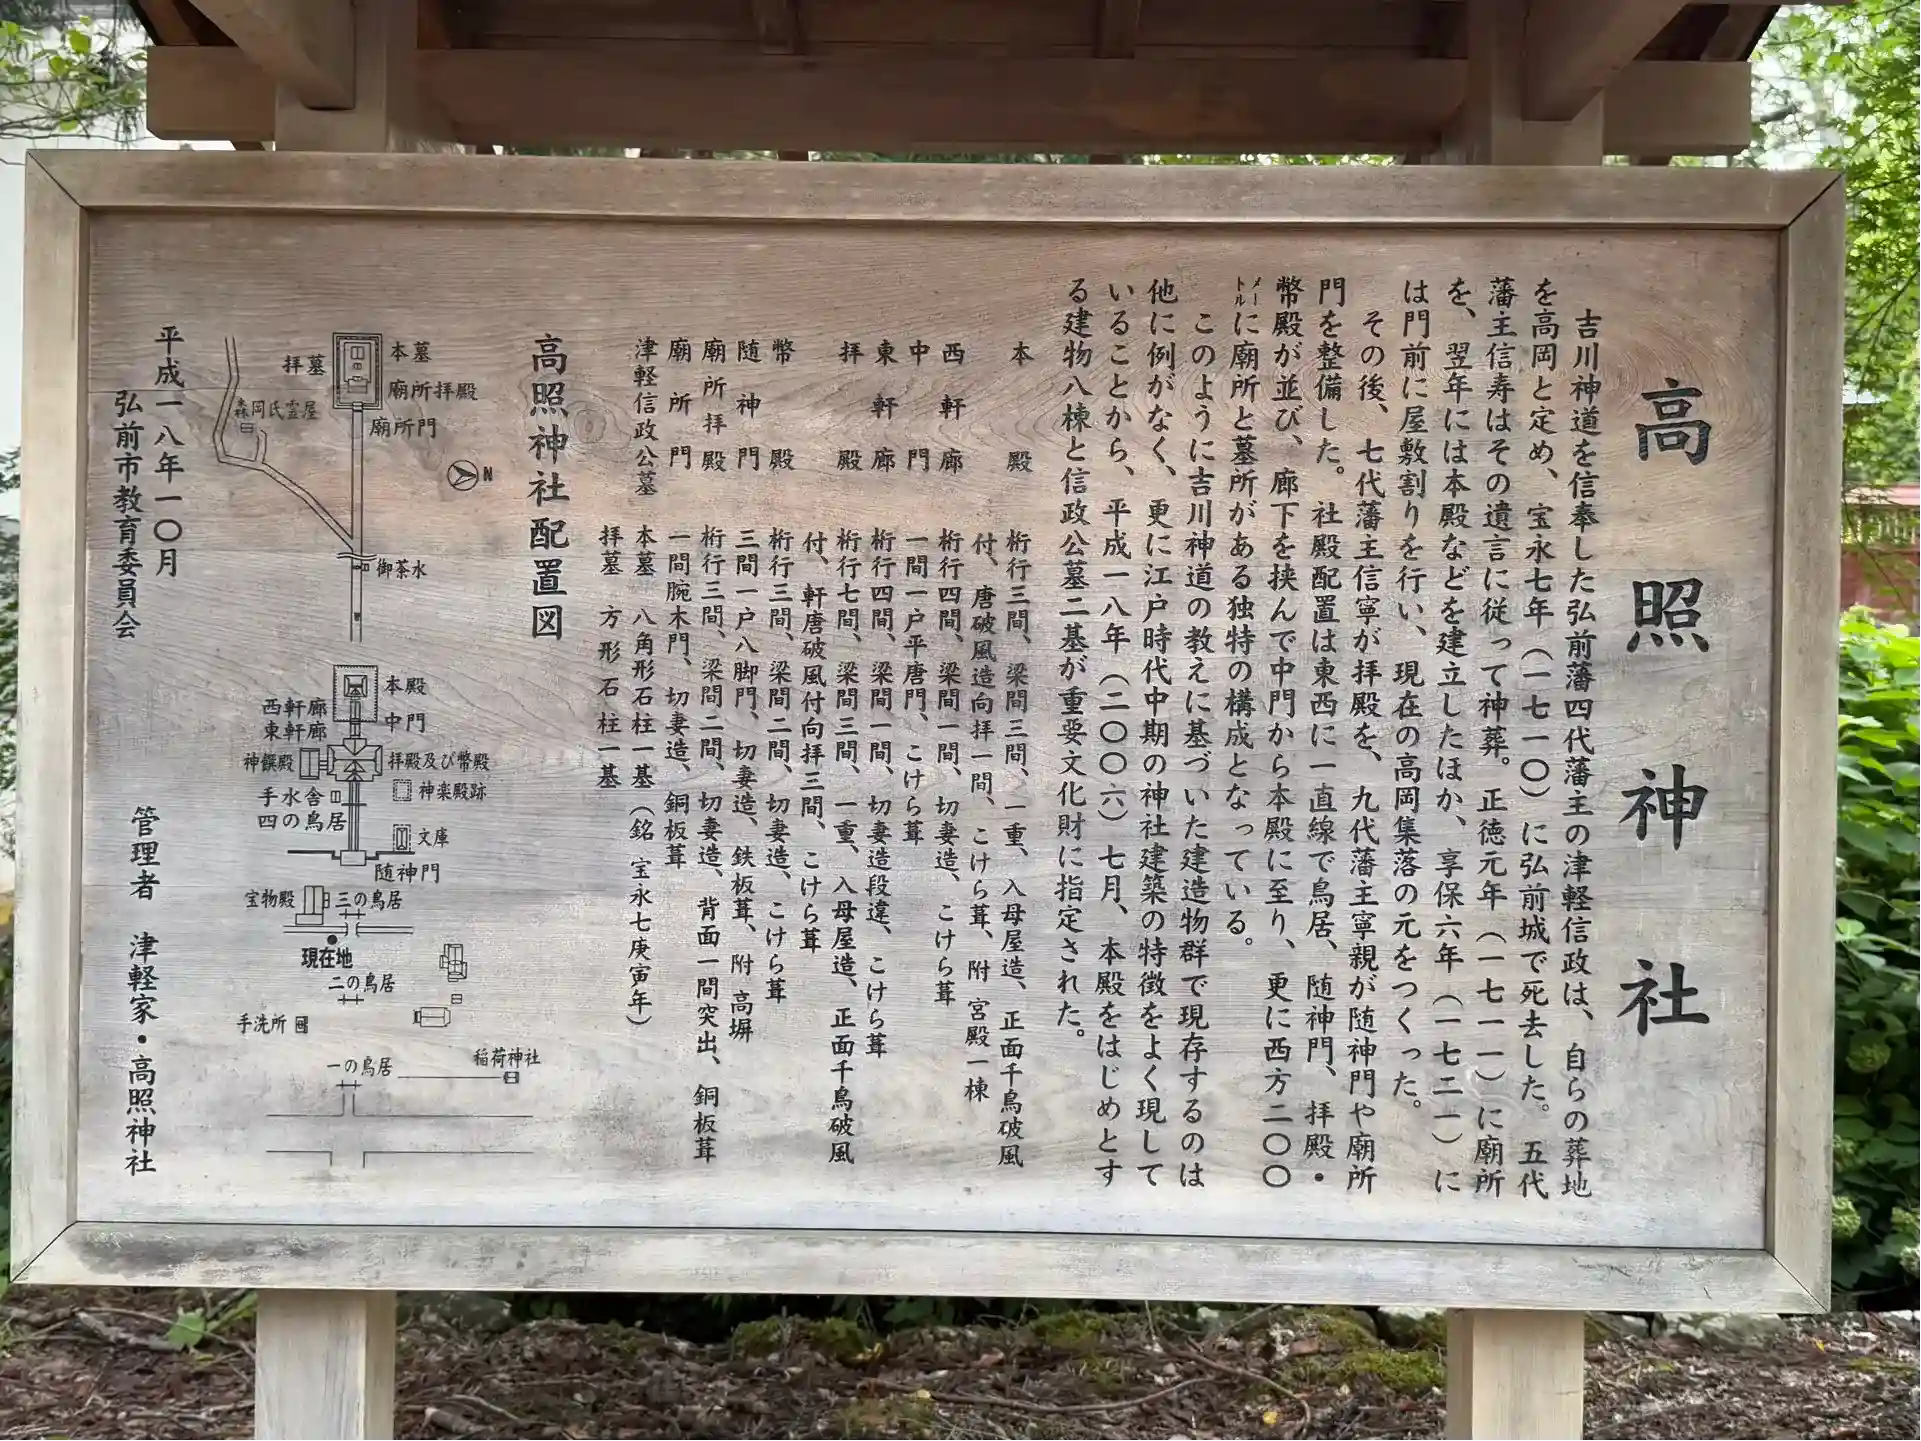 高照神社
吉川神道を信奉した弘前藩四代藩主の津軽信政は、自らの葬地
を高岡と定め、宝永七年（一七一〇）に弘前城で死去した。五代
藩主信寿はその遺言に従って神葬。正徳元年（一七一一）に廟所
を、翌年には本殿などを建立したほか、享保六年（一七二一）に
は門前に屋敷割りを行い、現在の高岡集落の元をつくった。
その後、七代藩主信寧が拝殿を、九代藩主寧親が随神門や廟所
門を整備した。社殿配置は東西に一直線で鳥居、随神門、拝殿・
幣殿が並び、廊下を挟んで中門から本殿に至り、更に西方二〇〇
メートルに廟所と墓所がある独特の構成となっている。
このように吉川神道の教えに基づいた建造物群で現存するのは
他に例がなく、更に江戸時代中期の神社建築の特徴をよく現して
いることから、平成一八年（二〇〇六）七月、本殿をはじめとす
る建物八棟と信政公墓二基が重要文化財に指定された。
本殿 桁行三間、梁間三間、一重、入母屋造、正面千鳥破風
付、唐破風造向拝一間、こけら葺、附 宮殿一棟
西軒廊 桁行四間、梁間一間、切妻造、こけら葺
中門 一間一戸平唐門、こけら葺
東軒廊 桁行四間、梁間一間、切妻造段違、こけら葺
拝殿 桁行七間、梁間三間、一重、入母屋造、正面千鳥破風
付、軒唐破風付向拝三間、こけら葺
幣殿 桁行三間、梁間二間、切妻造、こけら葺
随神門 三間一戸八脚門、切妻造、鉄板葺、附 高塀
廟所拝殿 桁行三間、梁間二間、切妻造、背面一間突出、銅板葺
廟所門 一間腕木門、切妻造、銅板葺
津軽信政公墓 本墓 八角形石柱一基（銘 宝永七庚寅年）
拝墓 方形石柱一基
高照神社配置図
本墓
拝墓
廟所拝殿
廟所門
森岡氏霊屋
N
御茶水
本殿
中門
西軒廊
東軒廊
神饌殿
拝殿及び幣殿
神楽殿跡
手水舎
四の鳥居
文庫
随神門
宝物殿
三の鳥居
現在地
二の鳥居
手洗所
稲荷神社
一の鳥居
平成一八年一〇月
弘前市教育委員会
管理者 津軽家・高照神社